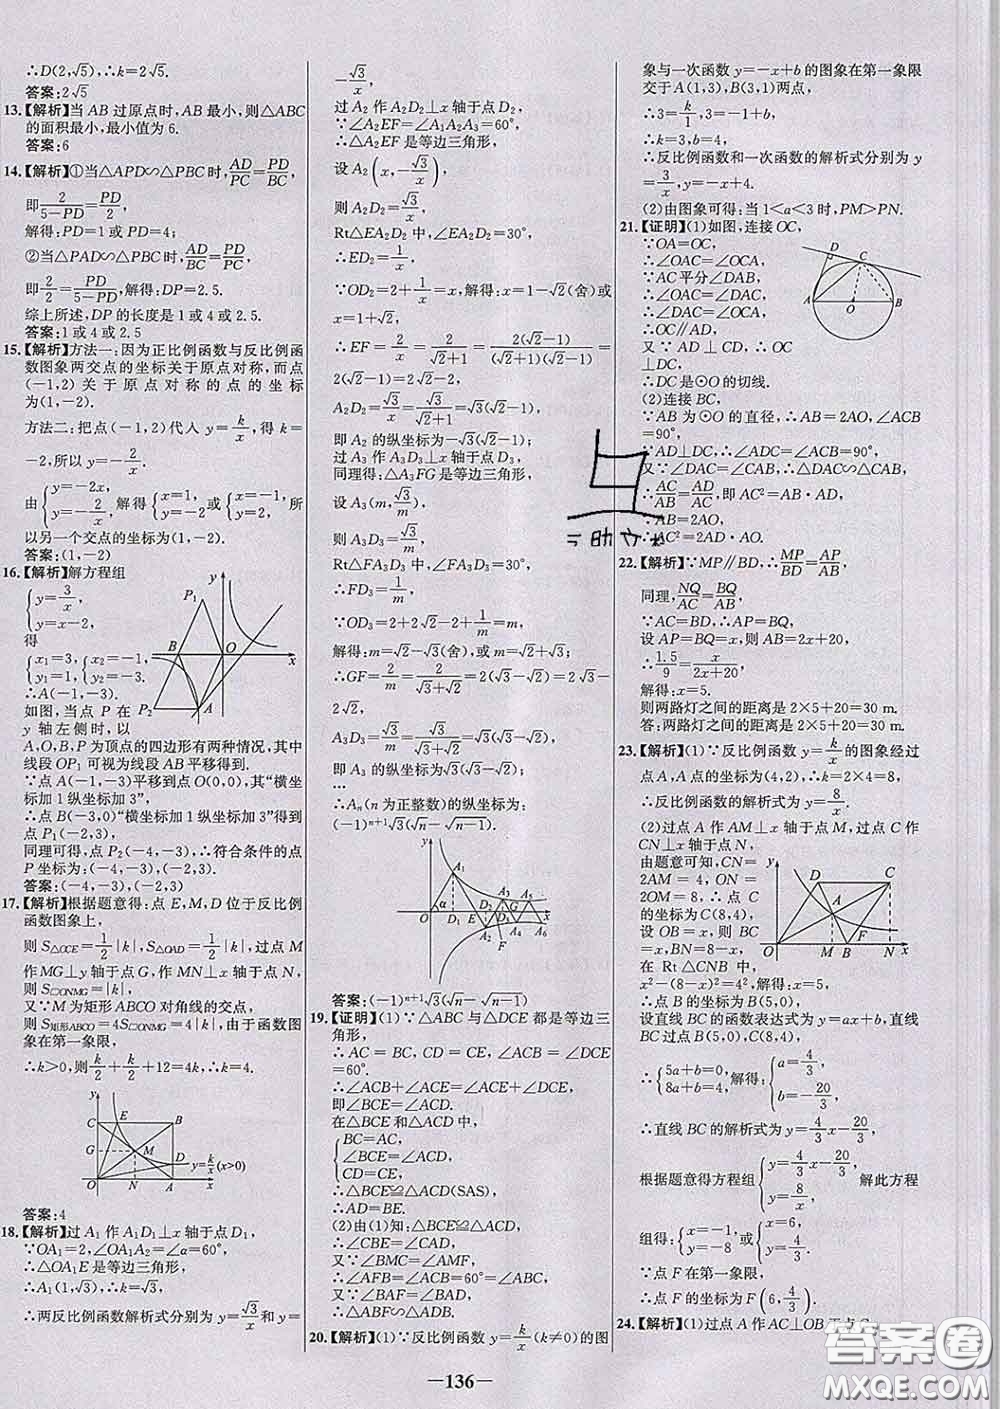 ∴D(2,√5).∴k=2√5.
答案:2√5
13.【解析】当 AB 过原点时,AB 最小,则△ABC
的面积最小,最小值为 6.
答案:6
14.【解析】①当△APD∽△PBC 时,AD/PC=PD/BC,
即2/(5-PD)=PD/2,
解得:PD=1 或 PD=4;
②当△PAD∽△PBC 时,AD/BC=PD/PC,
即2/2=PD/(5-PD),解得:DP=2.5.
综上所述,DP 的长度是 1 或 4 或 2.5.
答案:1 或 4 或 2.5
15.【解析】方法一:因为正比例函数与反比例函
数图象两交点的坐标关于原点对称,而点
(-1,2)关于原点对称的点的坐标
为(1,-2).
方法二:把点(-1,2)代入 y=k/x,得 k=
-2,所以 y=-2/x.
由{y=-2x, y=-2/x, 解得{x=1, y=-2 或{x=-1, y=2, 所
以另一个交点的坐标为(1,-2).
答案:(1,-2)
16.【解析】解方程组
{y=3/x, y=x-2,
得
{x₁=3, y₁=1, {x₂=-1, y₂=-3.
∴A(-1,-3).
如图,当点 P 在
y 轴左侧时,以
A,O,B,P 为顶点的四边形有两种情况,其中
线段 OP₁ 可视为线段 AB 平移得到.
∵点 A(-1,-3)平移到点 O(0,0),其“横坐
标加 1 纵坐标加 3”,
∴点 B(-3,0)“横坐标加 1 纵坐标加 3”得到
点 P₁(-2,3).
同理可得,点 P₂(-4,-3),∴符合条件的点
P 的坐标为:(-4,-3),(-2,3).
答案:(-4,-3),(-2,3)
17.【解析】根据题意得:点 E,M,D 位于反比例
函数图象上,
则 S△OCE=1/2|k|,S△OAD=1/2|k|,过点 M
作 MG⊥y 轴于点 G,作 MN⊥x 轴于点 N,
则 S□ONMG=|k|,
又∵M 为矩形 ABCO 对角线的交点,
则 S矩形ABCO=4S□ONMG=4|k|,由于函数图
象在第一象限,
∴k>0,则k/2+k/2+12=4k,∴k=4.
y C E B G M D y=k/x(x>0) O N A x
答案:4
18.【解析】过 A₁ 作 A₁D₁⊥x 轴于点 D₁,
∵OA₁=2,∠OA₁A₂=∠α=60°,
∴△OA₁E 是等边三角形,
∴A₁(1,√3),
∴两反比例函数解析式分别为 y=√3/x 和 y=
-√3/x.
过 A₂ 作 A₂D₂⊥x 轴于点 D₂,
∵∠A₂EF=∠A₁A₂A₃=60°,
∴△A₂EF 是等边三角形,
设 A₂(x,-√3/x),
则 A₂D₂=√3/x,
Rt△EA₂D₂ 中,∠EA₂D₂=30°,
∴ED₂=1/x,
∵OD₂=2+1/x=x,解得:x=1-√2(舍)或
x=1+√2,
∴EF=2/x=2/(√2+1)=2(√2-1)/((√2+1)(√2-1))=
2(√2-1)=2√2-2,
A₂D₂=√3/x=√3/(√2+1)=√3(√2-1),
即 A₂ 的纵坐标为-√3(√2-1);
过 A₃ 作 A₃D₃⊥x 轴于点 D₃,
同理得,△A₃FG 是等边三角形,
设 A₃(m,√3/m),
则 A₃D₃=√3/m,
Rt△FA₃D₃ 中,∠FA₃D₃=30°,
∴FD₃=1/m,
∵OD₃=2+2√2-2+1/m=m,
解得:m=√2-√3(舍),或 m=√2+√3;
∴GF=2/m=2/(√3+√2)=2(√3-√2)=2√3-
2√2,
A₃D₃=√3/m=√3/(√3+√2)=√3(√3-√2),
即 A₃ 的纵坐标为√3(√3-√2);
…
∴Aₙ(n 为正整数)的纵坐标为:
(-1)ⁿ⁺¹√3(√n-√(n-1)).
y A₁ A₃ A₅ O α D₁ E A₂ F A₄ A₆ x
答案:(-1)ⁿ⁺¹√3(√n-√(n-1))
19.【证明】(1)∵△ABC 与△DCE 都是等边三
角形,
∴AC=BC,CD=CE,∠ACB=∠DCE
=60°.
∴∠ACB+∠ACE=∠DCE+∠ACE,
即∠BCE=∠ACD.
在△BCE 和△ACD 中,
{BC=AC, ∠BCE=∠ACD, CD=CE,
∴△BCE≌△ACD(SAS).
∴AD=BE.
(2)由(1)知:△BCE≌△ACD,
∴∠CBE=∠CAD,
又∵∠BMC=∠AMF,
∴∠AFB=∠ACB=60°=∠ABC.
又∵∠BAF=∠BAD,
∴△ABF∽△ADB.
20.【解析】(1)∵反比例函数 y=k/x(k≠0)的图
象与一次函数 y=-x+b 的图象在第一象限
交于 A(1,3),B(3,1)两点,
∴3=k/1,3=-1+b,
∴k=3,b=4,
∴反比例函数和一次函数的解析式分别为 y
=3/x,y=-x+4.
(2)由图象可得:当 1<a<3 时,PM>PN.
21.【证明】(1)如图,连接 OC,
∵OA=OC,
∴∠OAC=∠OCA,
∵AC 平分∠DAB,
∴∠DAC=∠OAC,
∴∠DAC=∠OCA,
∴OC∥AD,
∵AD⊥CD,∴OC⊥DC.
∴DC 是⊙O 的切线.
(2)连接 BC,
∵AB 为⊙O 的直径,∴AB=2AO,∠ACB
=90°,
∵AD⊥DC,∴∠ADC=∠ACB=90°,
又∵∠DAC=∠CAB,∴△DAC∽△CAB,
∴AC/AB=AD/AC,即 AC²=AB·AD,
∵AB=2AO,
∴AC²=2AD·AO.
22.【解析】∵MP∥BD,∴MP/BD=AP/AB,
同理,NQ/AC=BQ/AB,
∵AC=BD,∴AP=BQ,
设 AP=BQ=x,则 AB=2x+20,
∴1.5/9=x/(2x+20),
解得:x=5.
则两路灯之间的距离为 2×5+20=30 m.
答:两路灯之间的距离为 2×5+20=30 m.
23.【解析】(1)∵反比例函数 y=k/x的图象经过
点 A,A 点的坐标为(4,2),∴k=2×4=8,
∴反比例函数的解析式为 y=8/x.
(2)过点 A 作 AM⊥x 轴于点 M,过点 C 作
CN⊥x 轴于点 N,
由题意可知,CN=
2AM=4,ON=
2OM=8,∴点 C 的
坐标为 C(8,4),
设 OB=x,则 BC
=x,BN=8-x,
在 Rt△CNB 中,
x²-(8-x)²=4²,解得:x=5,
∴点 B 的坐标为 B(5,0),
设直线 BC 的函数表达式为 y=ax+b,直线
BC 过点 B(5,0),C(8,4),
∴{5a+b=0, 8a+b=4, 解得:{a=4/3, b=-20/3,
∴直线 BC 的解析式为 y=4/3x-20/3,
根据题意得方程组{y=4/3x-20/3, y=8/x, 解此方程
组得:{x=-1, y=-8 或{x=6, y=4/3.
∵点 F 在第一象限,
∴点 F 的坐标为 F(6,4/3).
24.【解析】(1)过点 A 作 AC⊥OB 于点 C,
-136-
答案圈
MXQE.COM